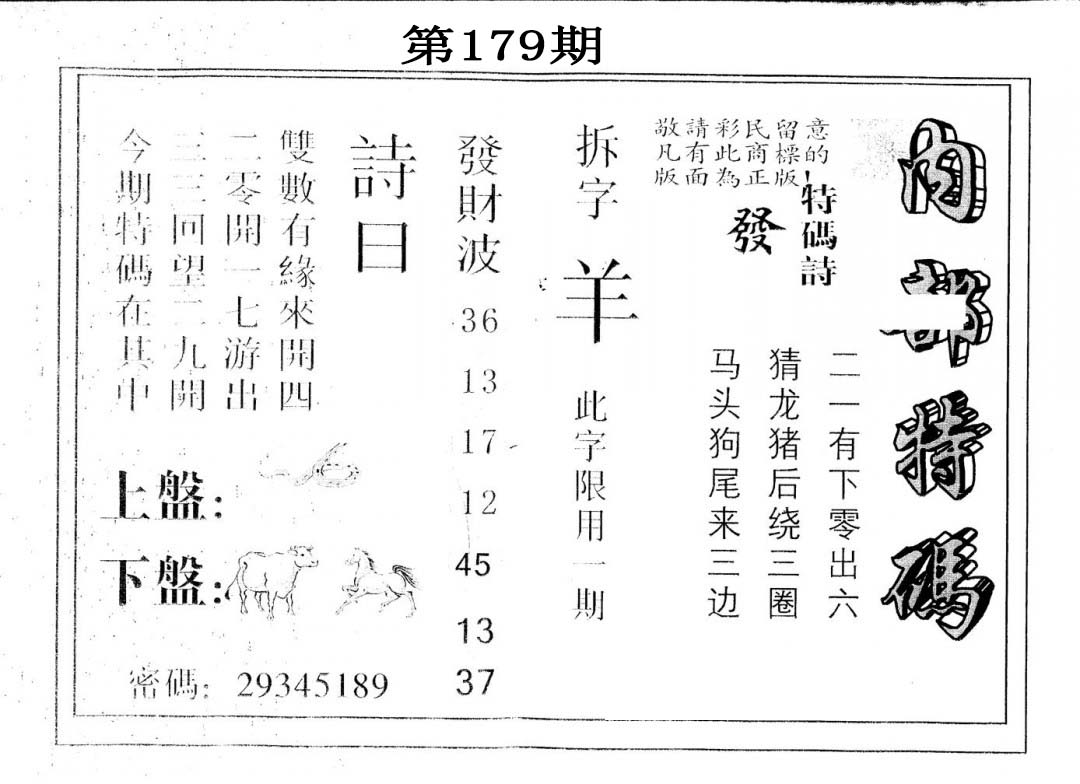 第179期
内部特碼
敬請彩民留意
凡有此商標的
版面為正版
特碼詩
發
二一有下零出六
猜龙猪后绕三圈
马头狗尾来三边
拆字
羊
此字限用一期
發財波
36
13
17
12
45
13
37
詩曰
雙數有緣來開四
二零開一七游出
三三回望二九開
今期特碼在其中
上盤:
下盤:
密碼: 29345189